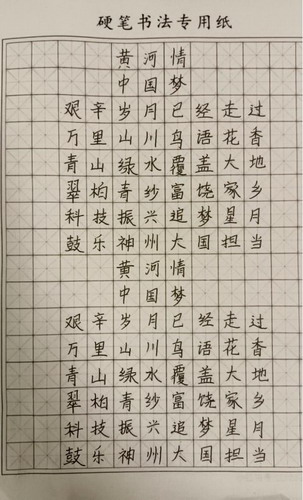 硬笔书法专用纸
黄河情
中国梦
艰辛岁月已经走过
万里山川鸟语花香
青山绿水覆盖大地
翠柏青纱富饶家乡
科技振兴追梦星月
鼓乐神州大国担当
黄河情
中国梦
艰辛岁月已经走过
万里山川鸟语花香
青山绿水覆盖大地
翠柏青纱富饶家乡
科技振兴追梦星月
鼓乐神州大国担当